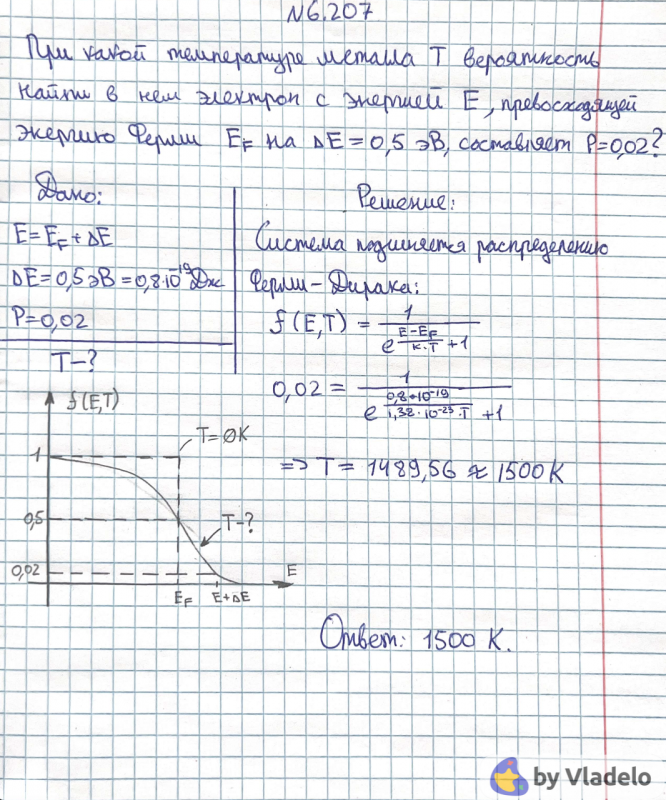 №6.207
При какой температуре металла T вероятность
найти в нем электрон с энергией E, превосходящей
энергию Ферми E_F на ΔE = 0,5 эВ, составляет P=0,02?
Дано:
E = E_F + ΔE
ΔE = 0,5 эВ = 0,8·10^-19 Дж
P = 0,02
T - ?
Решение:
Система подчиняется распределению
Ферми-Дирака:
f(E,T) = 1 / (e^((E-E_F)/(k·T)) + 1)
0,02 = 1 / (e^((0,8·10^-19)/(1,38·10^-23·T)) + 1)
=> T = 1489,56 ≈ 1500 K
f(E,T)
T = 0K
1
0,5
T-?
0,02
E
E_F
E+ΔE
Ответ: 1500 K.
by Vladelo